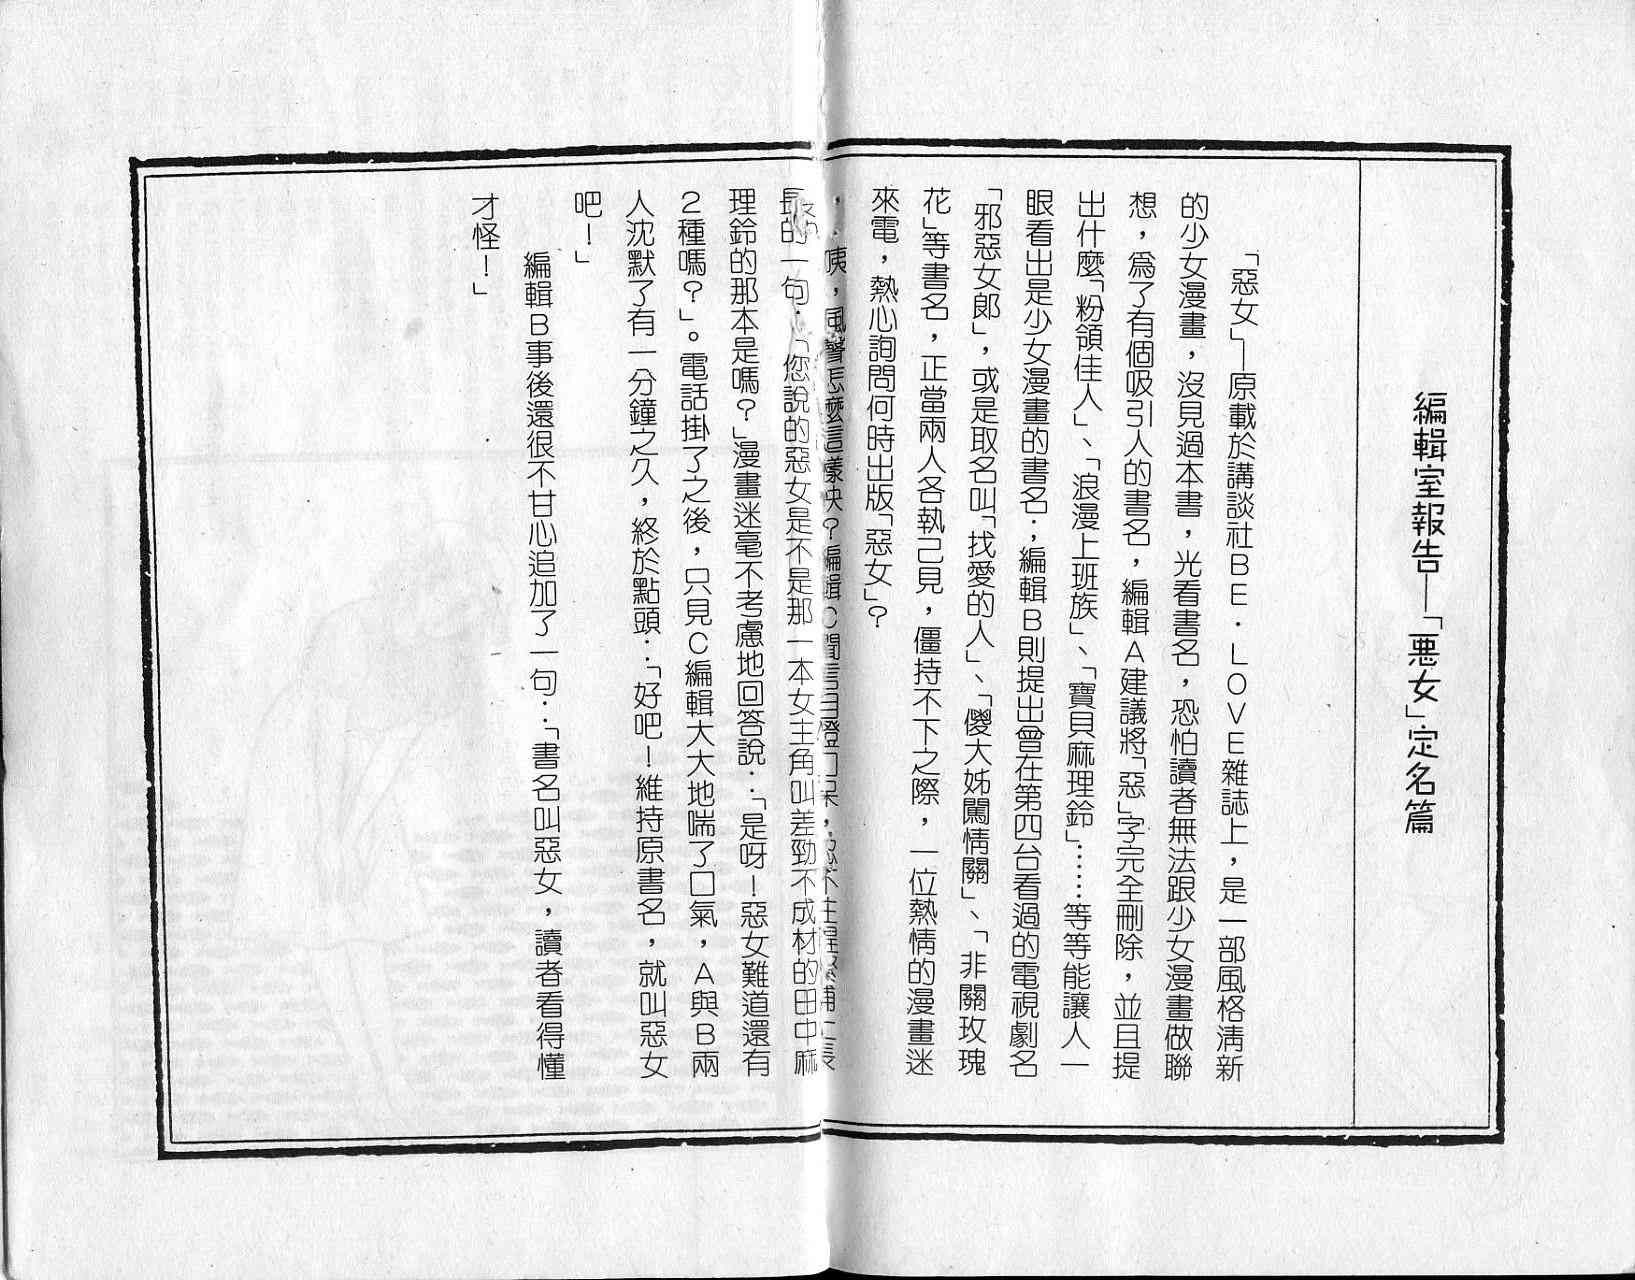 編輯室報告—「惡女」定名篇
「惡女」—原載於講談社BE·LOVE雜誌上，是一部風格淸新
的少女漫畫，沒見過本書，光看書名，恐怕讀者無法跟少女漫畫做聯
想，爲了有個吸引人的書名，編輯A建議將「惡」字完全刪除，並且提
出什麼「粉領佳人」、「浪漫上班族」、「寶貝麻理鈴」……等等能讓人一
眼看出是少女漫畫的書名；編輯B則提出曾在第四台看過的電視劇名
「邪惡女郞」，或是取名叫「找愛的人」、「儍大姊闖情關」、「非關玫瑰
花」等書名，正當兩人各執己見，僵持不下之際，一位熱情的漫畫迷
來電，熱心詢問何時出版「惡女」？
，咦，風聲怎麼這樣快？編輯C聞言目瞪口呆，
長的一句：「您說的惡女是不是那一本女主角叫差勁不成材的田中麻
理鈴的那本是嗎？」漫畫迷毫不考慮地回答說：「是呀！惡女難道還有
2種嗎？」。電話掛了之後，只見C編輯大大地喘了口氣，A與B兩
人沈默了有一分鐘之久，終於點頭：「好吧！維持原書名，就叫惡女
吧！」
編輯B事後還很不甘心追加了一句：「書名叫惡女，讀者看得懂
才怪！」